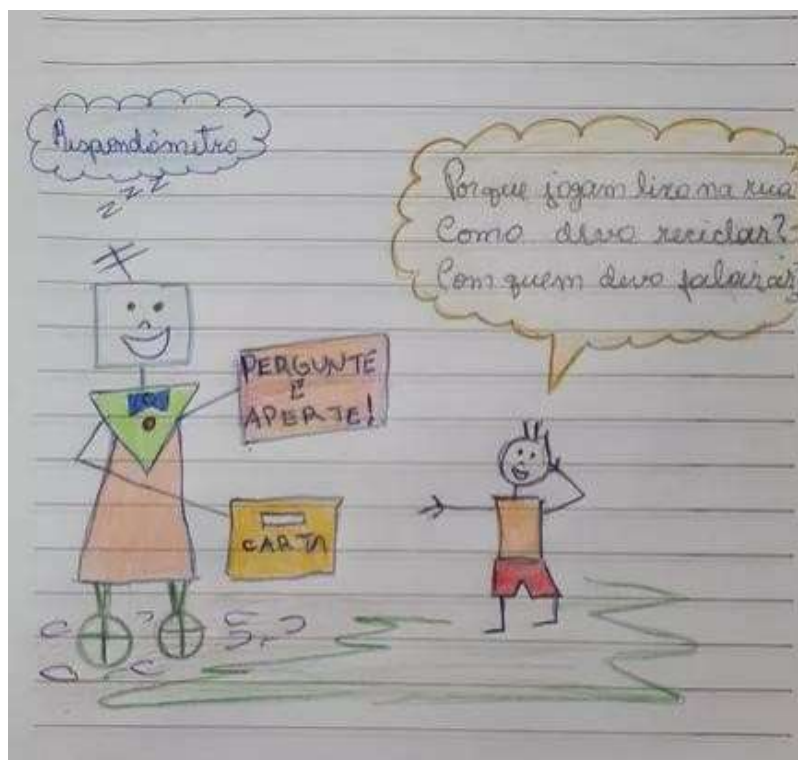 Respondômetro
zzz
Porque jogam lixo na rua
Como devo reciclar?
Com quem devo falarar?
PERGUNTE
E
APERTE!
CARTA